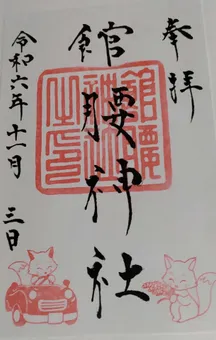 奉拝
館腰神社
館腰
之印
令和六年十一月
三日